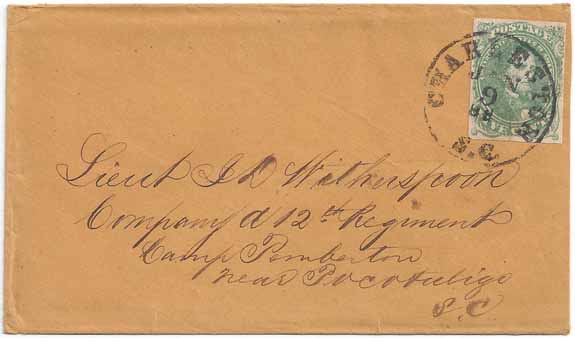 POSTAGE
CHARLESTON
JAN
9
S.C.
Lieut J D Witherspoon
Company d 12th Regiment
Camp Pemberton
near Pocotuligo
S.C.